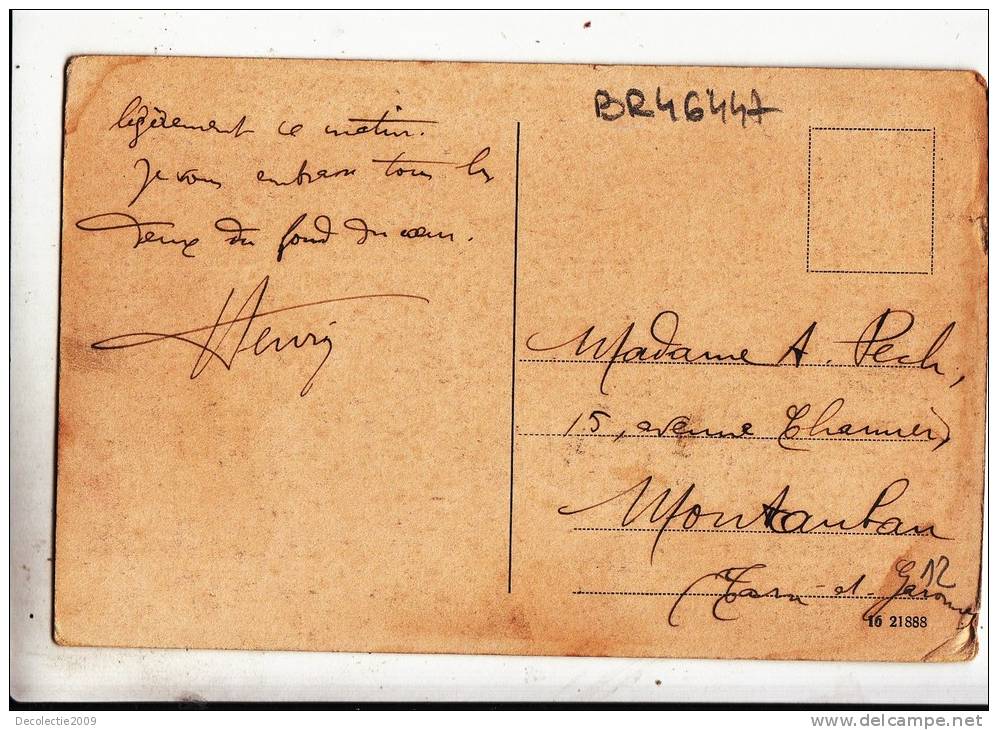 légèrement ce matin.
Je vous embrasse tous les
deux du fond du cœur.
Henri
BR46447
Madame A. Pech,
15, avenue
Montauban
Tarn-et-Garonne
12
16 21888
Decolectie2009
delcampe.net